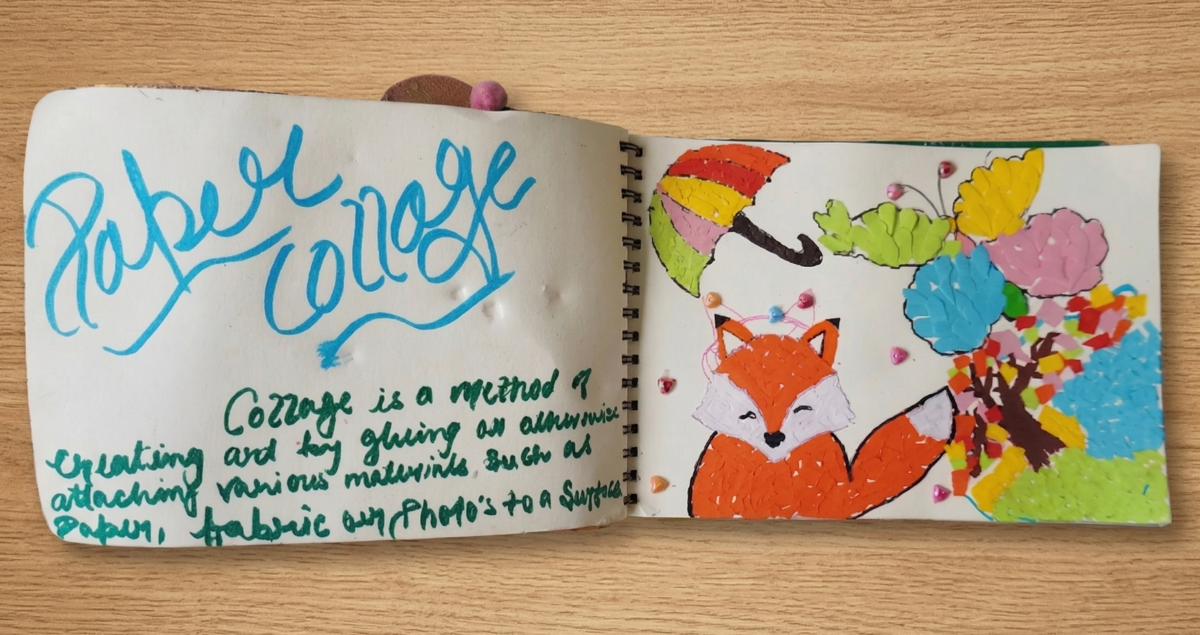 Paper
Collage
Collage is a method of
creating art by gluing or otherwise
attaching various materials such as
Paper, fabric or Photo's to a Surface